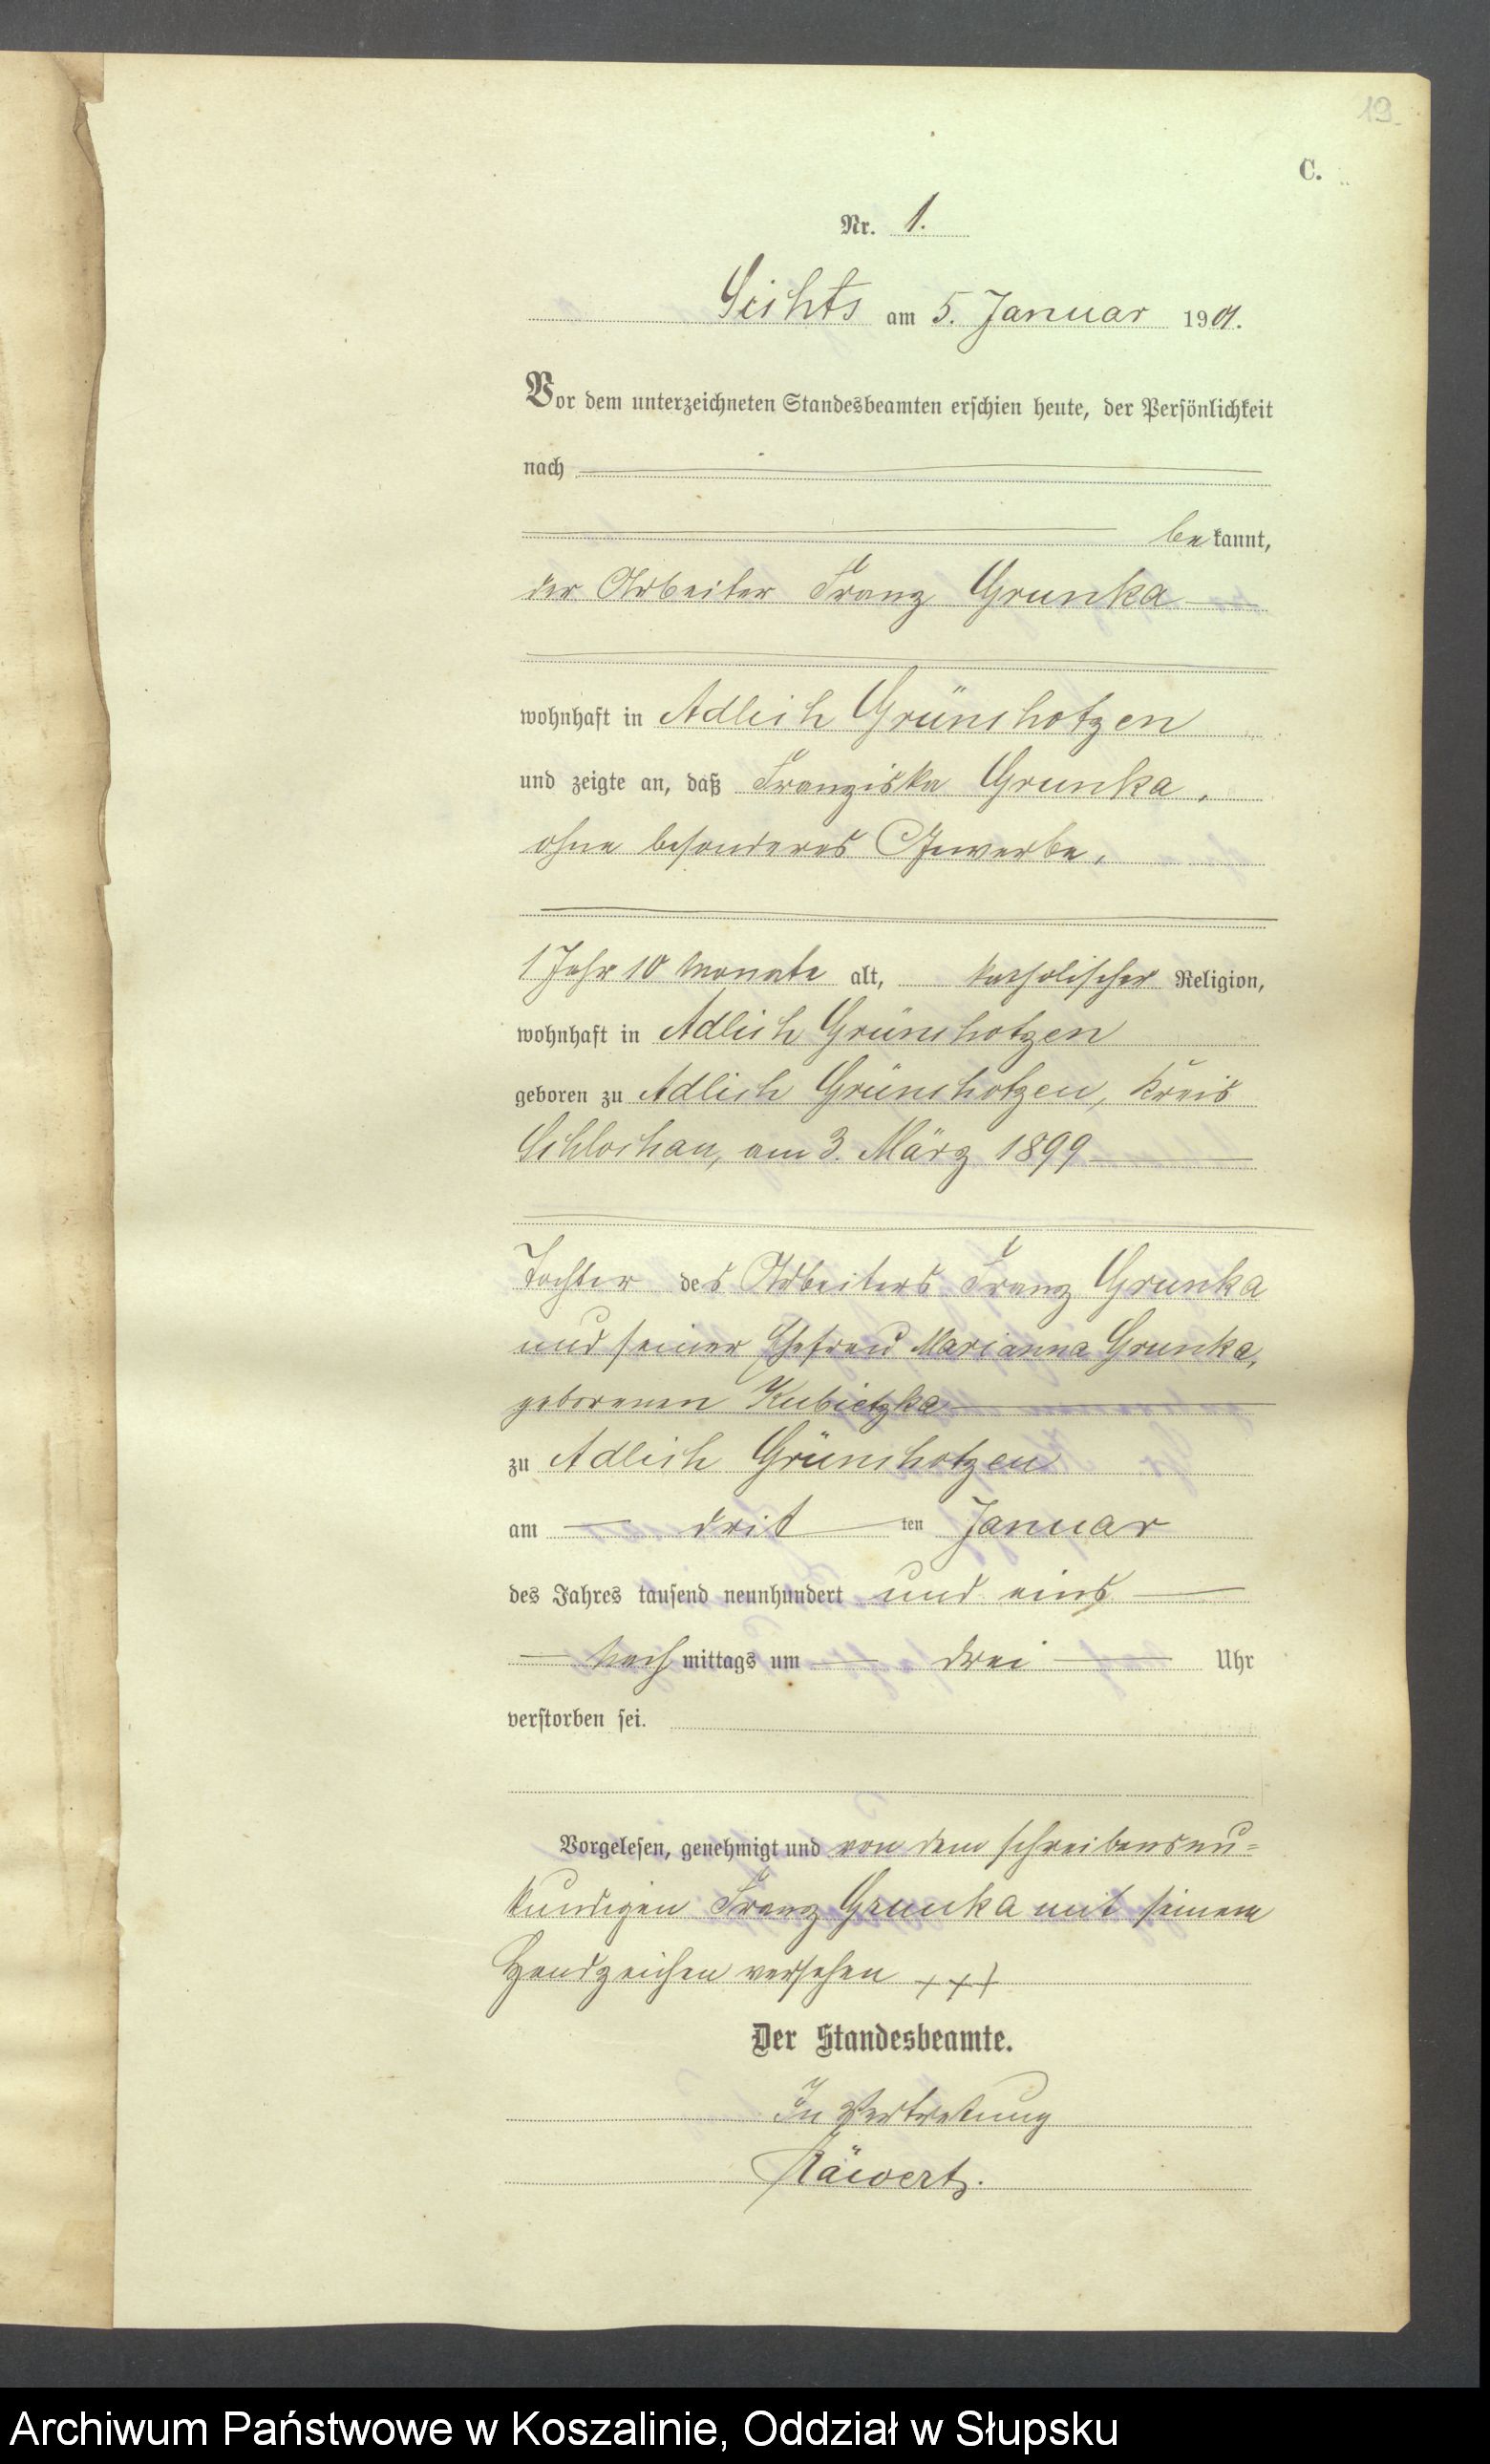 19.
C.
Nr. 1.
Sichts am 5. Januar 1901.
Vor dem unterzeichneten Standesbeamten erschien heute, der Persönlichkeit
nach
be kannt,
der Arbeiter Franz Grunka
wohnhaft in Adlich Grünchotzen
und zeigte an, daß Franziska Grunka,
ohne besonderes Gewerbe,
1 Jahr 10 Monate alt, katholischer Religion,
wohnhaft in Adlich Grünchotzen
geboren zu Adlich Grünchotzen, Kreis
Schlochau, am 3. März 1899
Tochter des Arbeiters Franz Grunka
und seiner Ehefrau Marianna Grunka,
geborenen Kubietzka
zu Adlich Grünchotzen
am drit ten Januar
des Jahres tausend neunhundert und eins
Nach mittags um drei Uhr
verstorben sei.
Vorgelesen, genehmigt und von dem schreibensun=
kundigen Franz Grunka mit seinem
Handzeichen versehen +++
Der Standesbeamte.
In Vertretung
Räwert.
Archiwum Państwowe w Koszalinie, Oddział w Słupsku